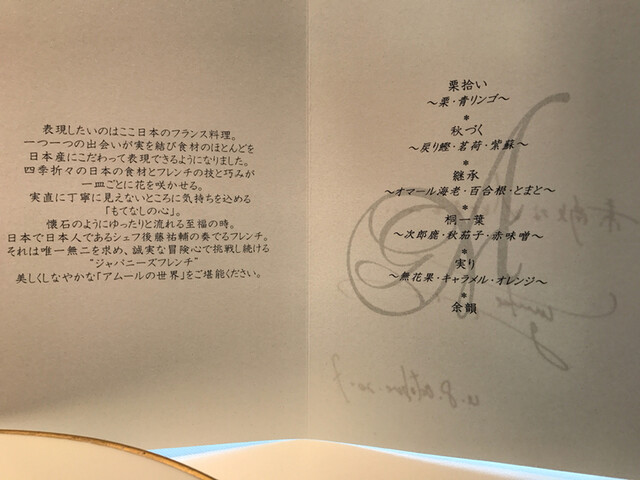 表現したいのはここ日本のフランス料理。
一つ一つの出会いが実を結び食材のほとんどを
日本産にこだわって表現できるようになりました。
四季折々の日本の食材とフレンチの技と巧みが
一皿ごとに花を咲かせる。
実直に丁寧に見えないところに気持ちを込める
「もてなしの心」。
懐石のようにゆったりと流れる至福の時。
日本で日本人であるシェフ後藤祐輔の奏でるフレンチ。
それは唯一無二を求め、誠実な冒険心で挑戦し続ける
“ジャパニーズフレンチ”
美しくしなやかな「アムールの世界」をご堪能ください。
栗拾い
～栗・青リンゴ～
*
秋づく
～戻り鰹・茗荷・紫蘇～
*
継承
～オマール海老・百合根・とまと～
*
桐一葉
～次郎鹿・秋茄子・赤味噌～
*
実り
～無花果・キャラメル・オレンジ～
*
余韻